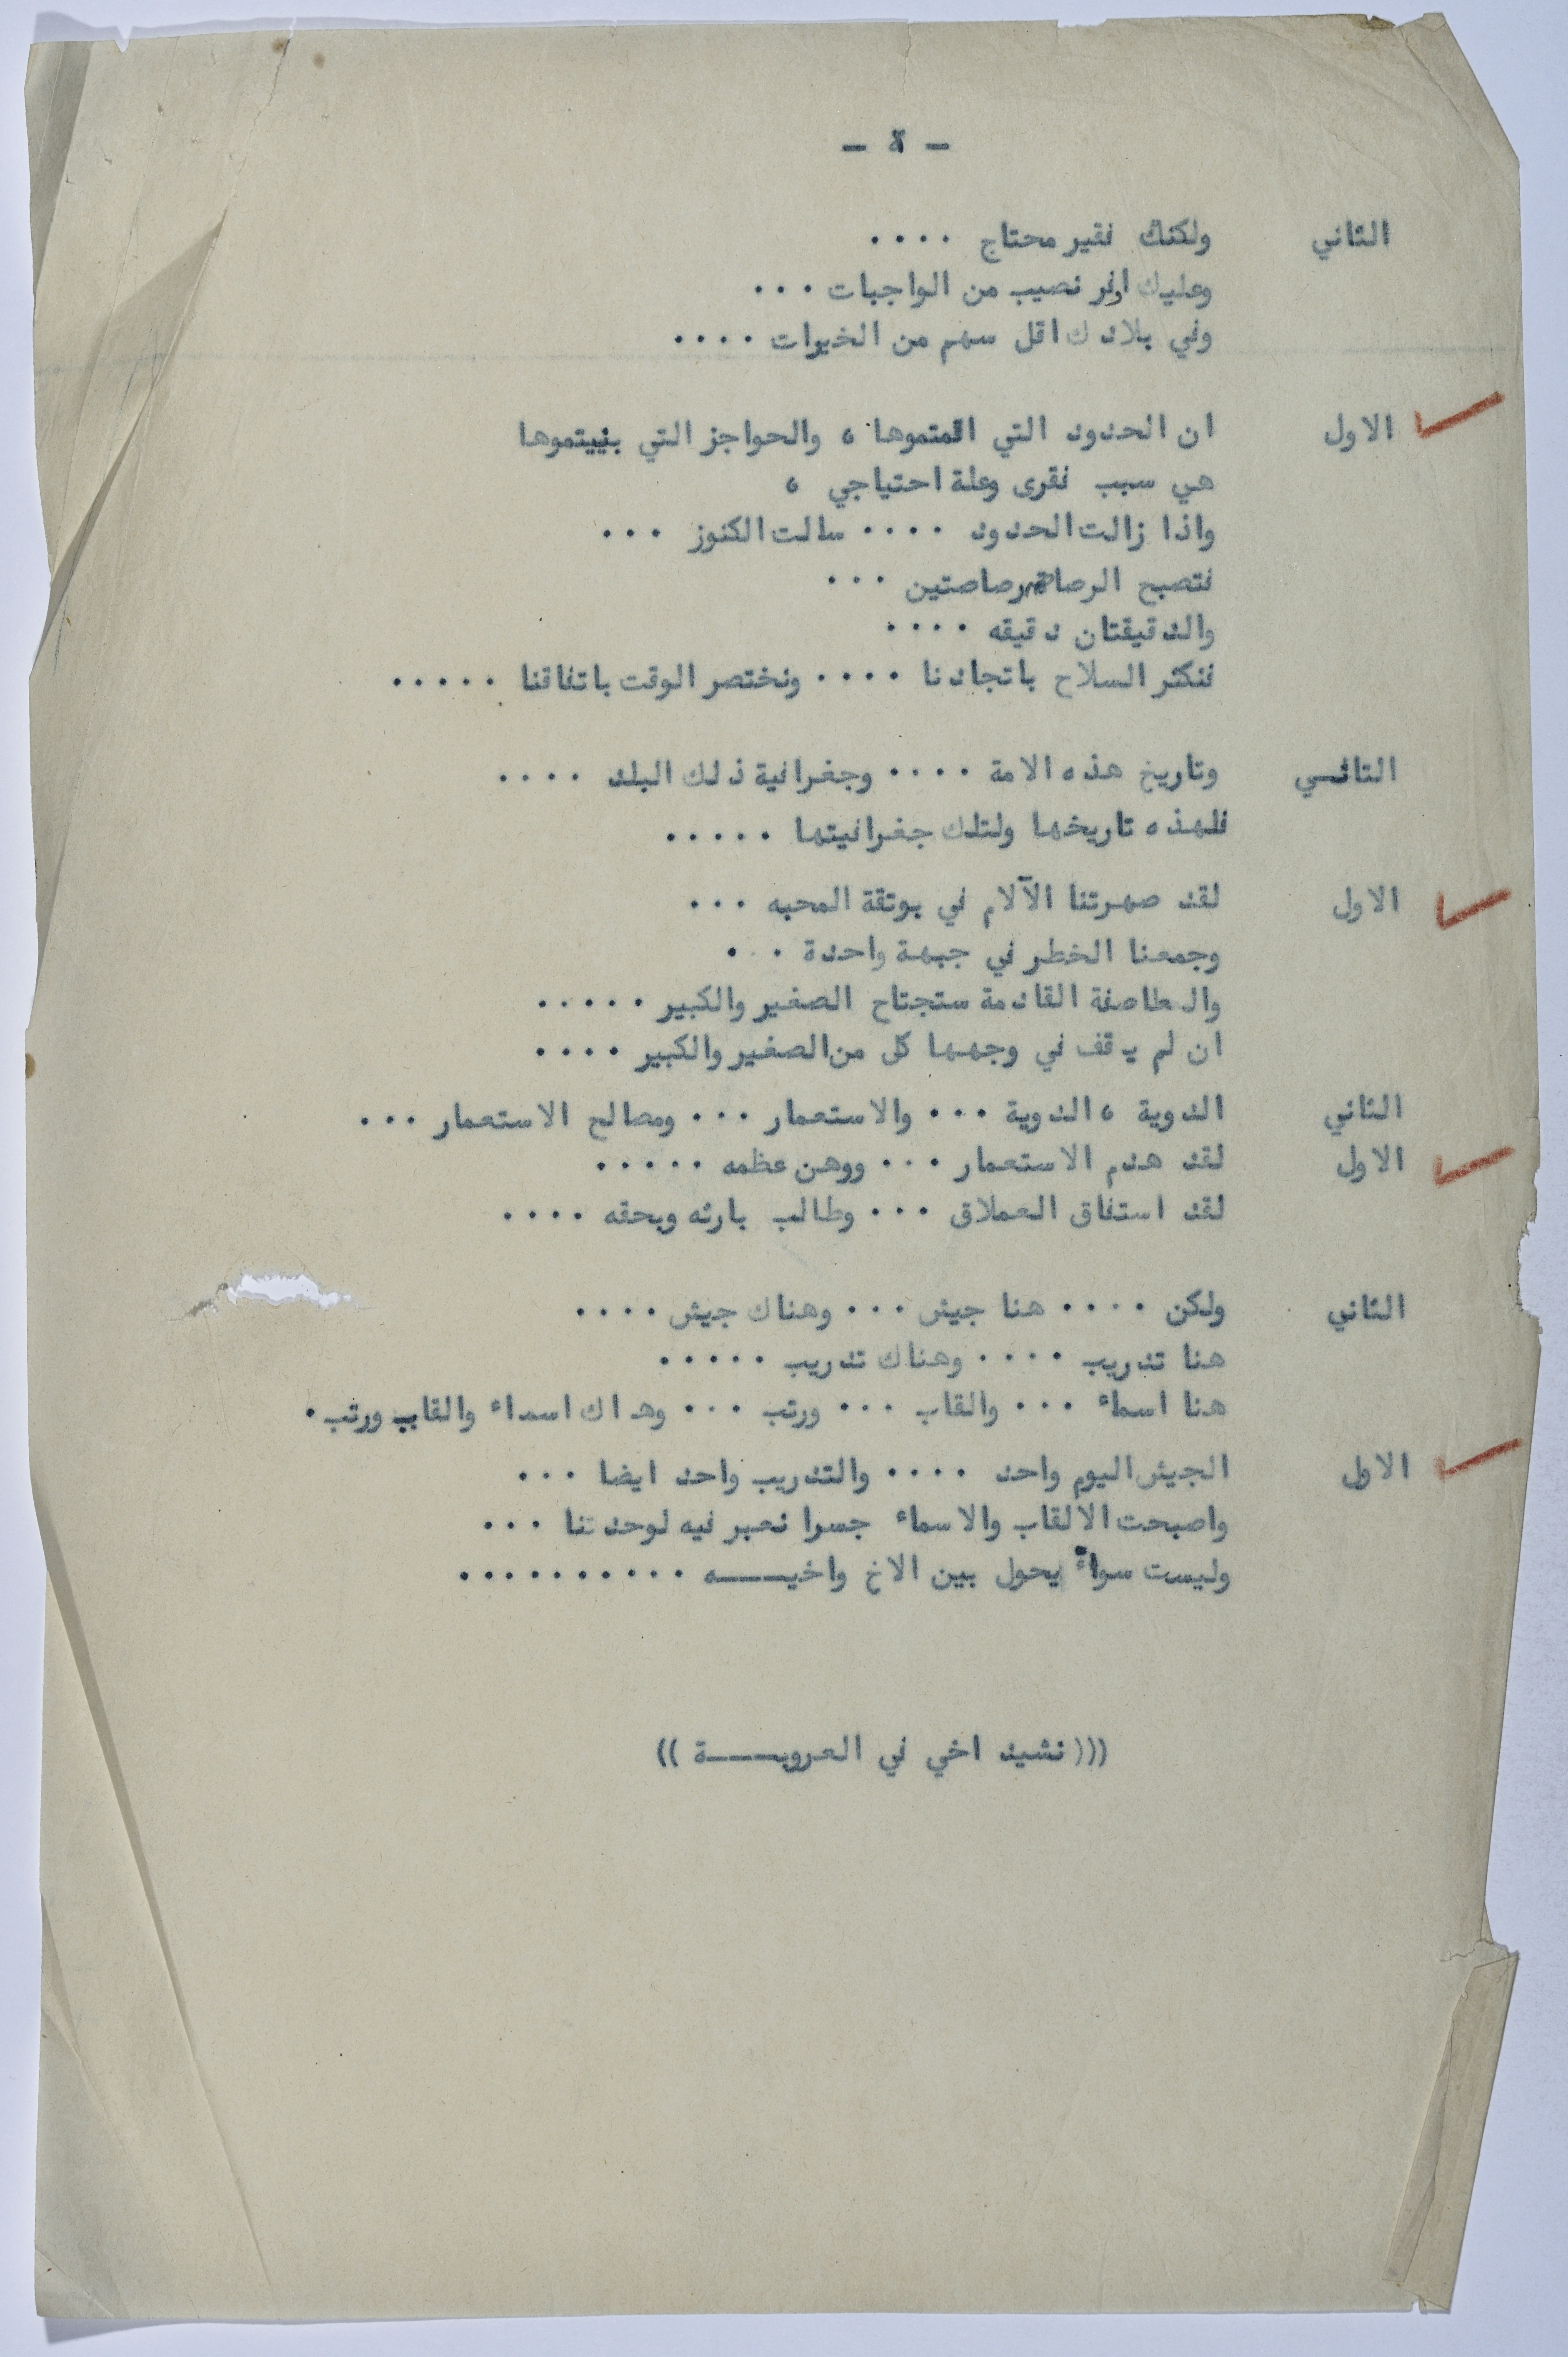 - ٤ -
الثاني ولكنك فقير محتاج ....
وعليك اوفر نصيب من الواجبات ...
وفي بلادك اقل سهم من الخيرات ....
الاول ان الحدود التي اقمتموها ، والحواجز التي بنيتموها
هي سبب فقرى وعلة احتياجي ،
واذا زالت الحدود .... سالت الكنوز ...
فتصبح الرصاصة رصاصتين ...
والدقيقتان دقيقه ....
فنكثر السلاح باتحادنا .... ونختصر الوقت باتفاقنا .....
الثانـي وتاريخ هذه الامة .... وجغرافية ذلك البلد ....
فلهذه تاريخها ولتلك جغرافيتها .....
الاول لقد صهرتنا الآلام في بوتقة المحبه ...
وجمعنا الخطر في جبهة واحدة ...
والعاصفة القادمة ستجتاح الصغير والكبير .....
ان لم يقف في وجهها كل من الصغير والكبير ....
الثاني الدوية ، الدوية ... والاستعمار ... ومصالح الاستعمار ...
الاول لقد هدم الاستعمار ... ووهن عظمه .....
لقد استفاق العملاق ... وطالب بارثه وبحقه ....
الثاني ولكن .... هنا جيش ... وهناك جيش ....
هنا تدريب .... وهناك تدريب .....
هنا اسماء ... والقاب ... ورتب ... وهناك اسماء والقاب ورتب .
الاول الجيش اليوم واحد .... والتدريب واحد ايضا ...
واصبحت الالقاب والاسماء جسرا نعبر فيه لوحدتنا ...
وليست سواءً يحول بين الاخ واخيـــه ..........
(((نشيد اخي في العروبـــة ))